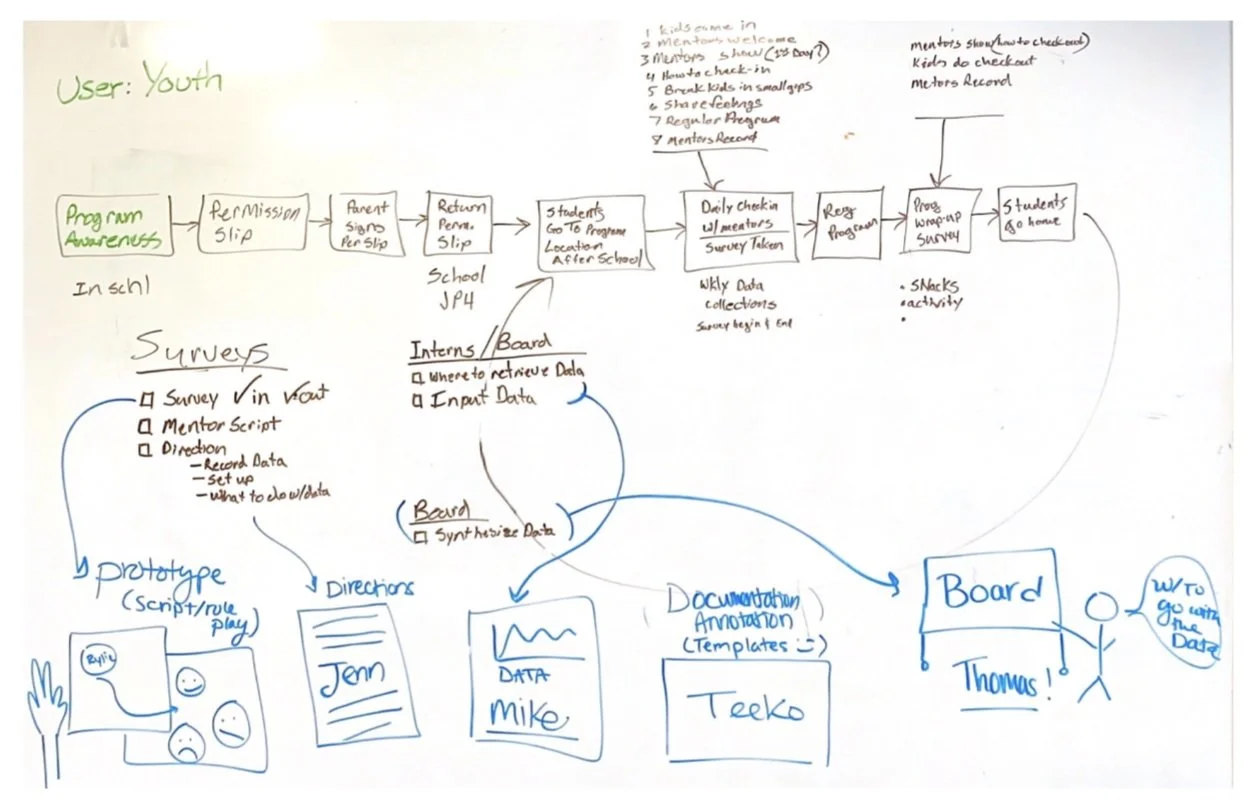 User: Youth
1 kids come in
2 Mentors welcome
3 Mentors show (1st Day?)
4 How to check-in
5 Break kids in small grps
6 Share feelings
7 Regular Program
8 Mentors Record
mentors show (how to checkout)
Kids do checkout
Metors Record
Program
Awareness
In schl
Permission
Slip
Parent
Signs
Per Slip
Return
Perm.
Slip
School
JP4
Students
Go To Program
Location
After School
Daily Checkin
w/mentors
Survey Taken
Wkly Data
collections
Survey begin & End
Reg
Program
Prog
Wrap-up
Survey
• SNacks
• activity
•
Students
go home
Surveys
Survey ✓in ✓out
Mentor Script
Direction
– Record Data
– Set up
– What to do w/data
Interns/Board
Where to retrieve Data
Input Data
(Board
Synthesize Data)
prototype
(script/role
play)
Directions
Jenn
DATA
Mike
Documentation
Annotation
(Templates :-))
Teeko
Board
Thomas!
W/ To
go with
the
Data